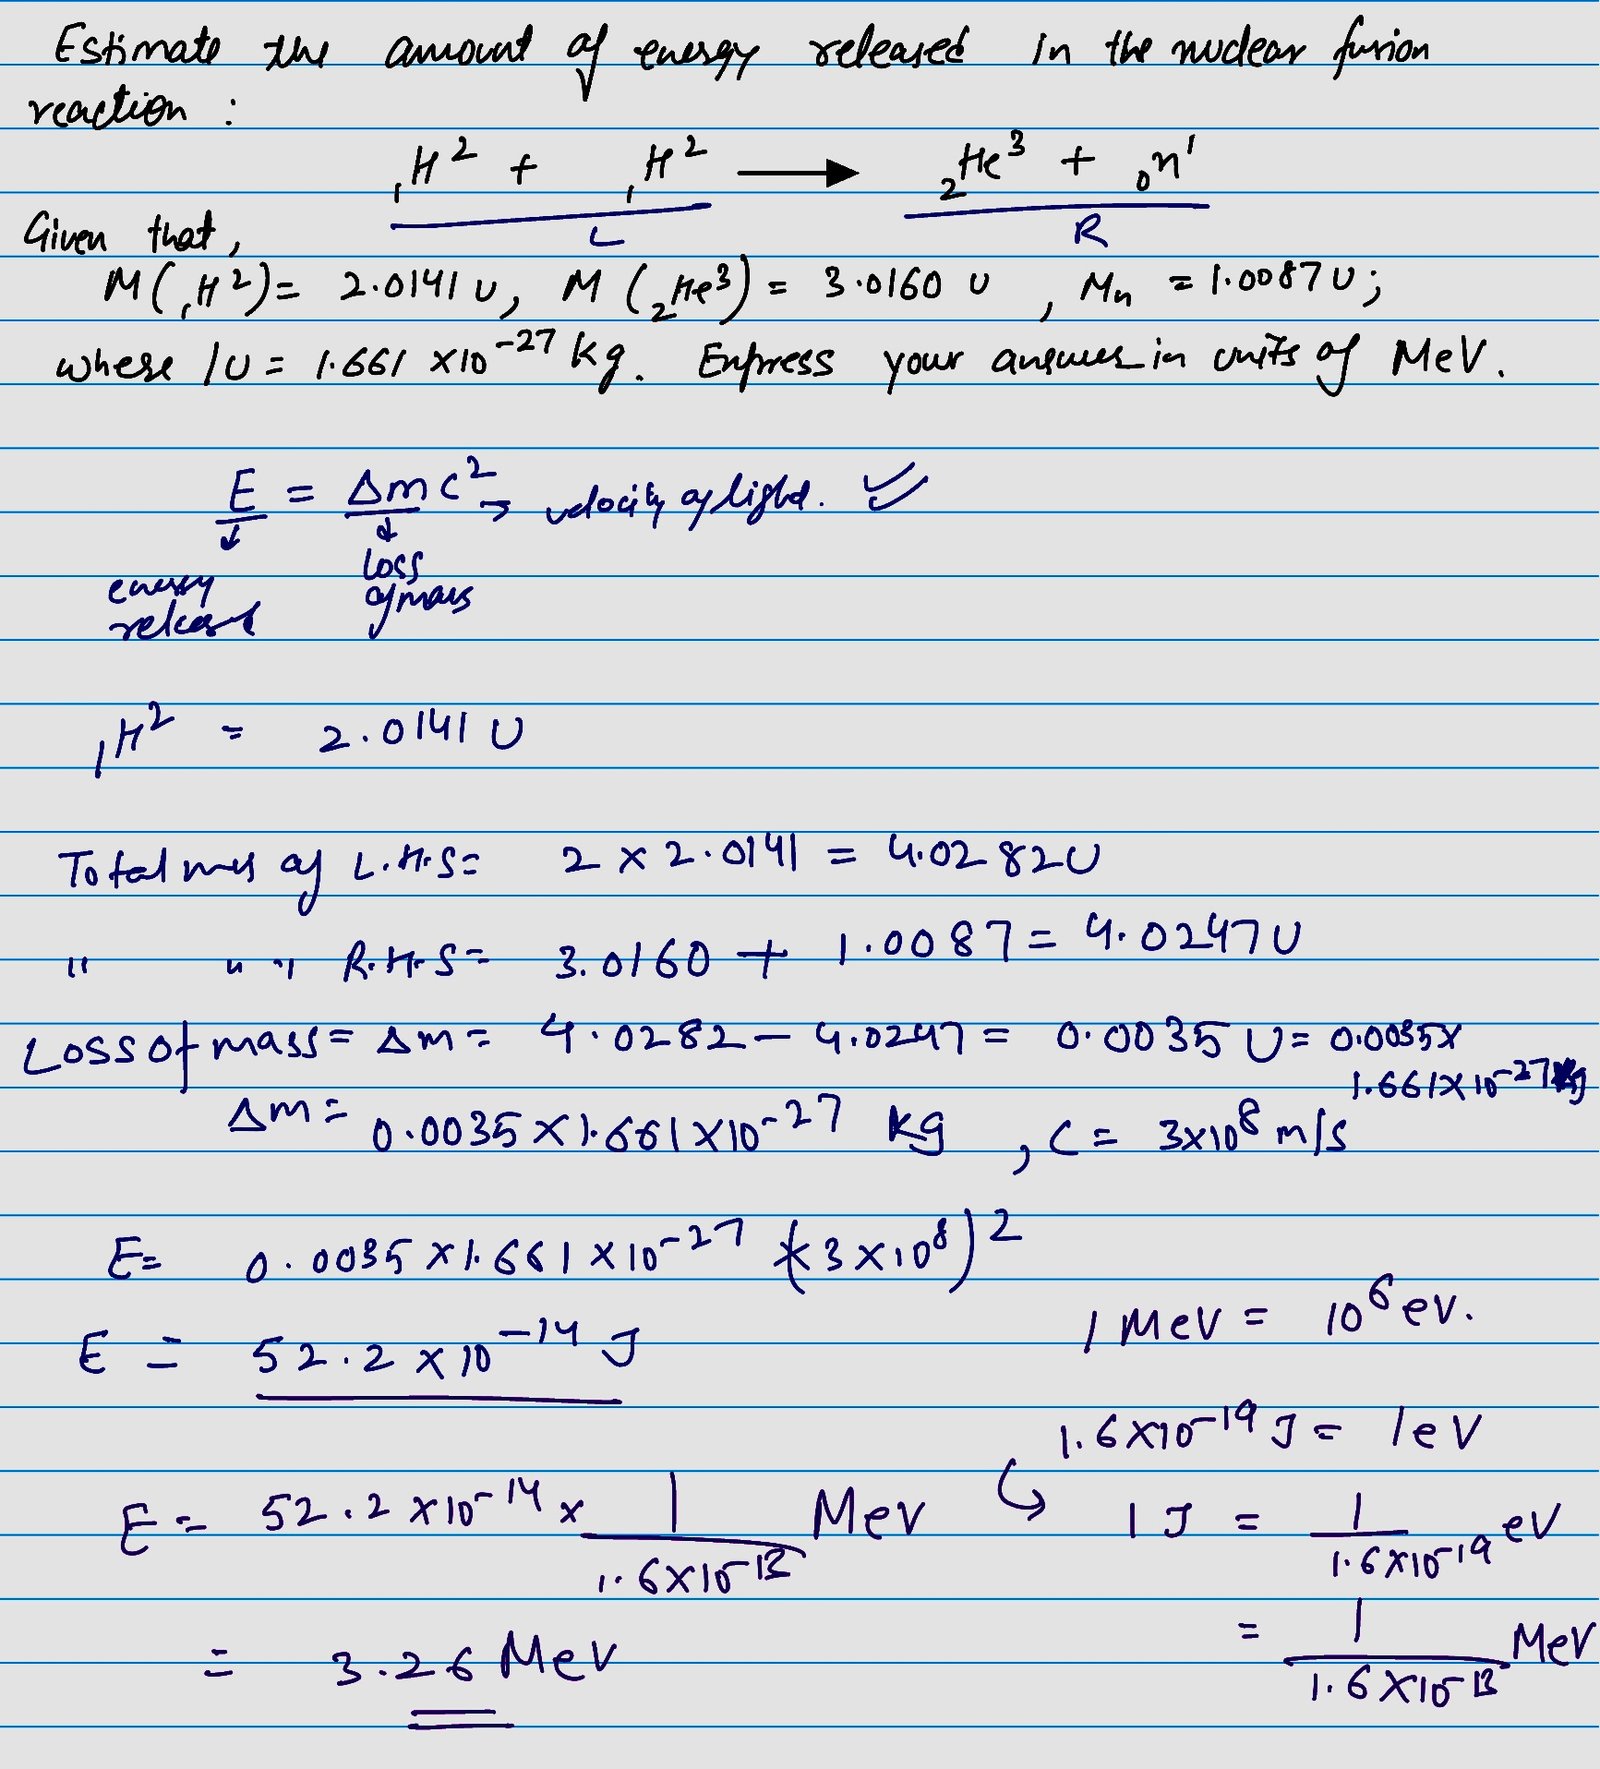 Estimate the amount of energy released in the nuclear fusion
reaction :
₁H² + ₁H² → ₂He³ + ₀n¹
L R
Given that,
M(₁H²) = 2.0141 U, M (₂He³) = 3.0160 U , Mn = 1.0087 U;
where 1U = 1.661 ×10⁻²⁷ Kg. Express your answer in units of MeV.
E = Δm c² → velocity of light.
energy release
loss of mass
₁H² = 2.0141 U
Total mass of L.H.S = 2 × 2.0141 = 4.0282 U
" " " R.H.S = 3.0160 + 1.0087 = 4.0247 U
Loss of mass = Δm = 4.0282 − 4.0247 = 0.0035 U = 0.0035×
1.661×10⁻²⁷ kg
Δm = 0.0035 × 1.661 × 10⁻²⁷ kg , C = 3×10⁸ m/s
E = 0.0035 × 1.661 × 10⁻²⁷ × (3 × 10⁸)²
1 MeV = 10⁶ eV.
E = 52.2 × 10⁻¹⁴ J
1.6×10⁻¹⁹ J = 1eV
E = 52.2 ×10⁻¹⁴ × 1/1.6×10⁻¹³ MeV
1 J = 1/1.6×10⁻¹⁹ eV
= 1/1.6×10⁻¹³ MeV
= 3.26 MeV